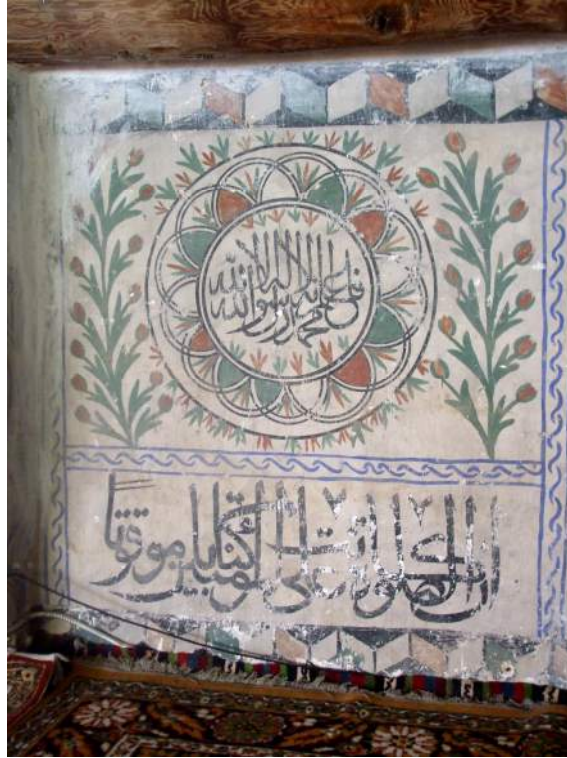 فاعلم انه لا اله الا الله محمد رسول الله
ان الصلوة كانت على المؤمنين كتابا موقوتا